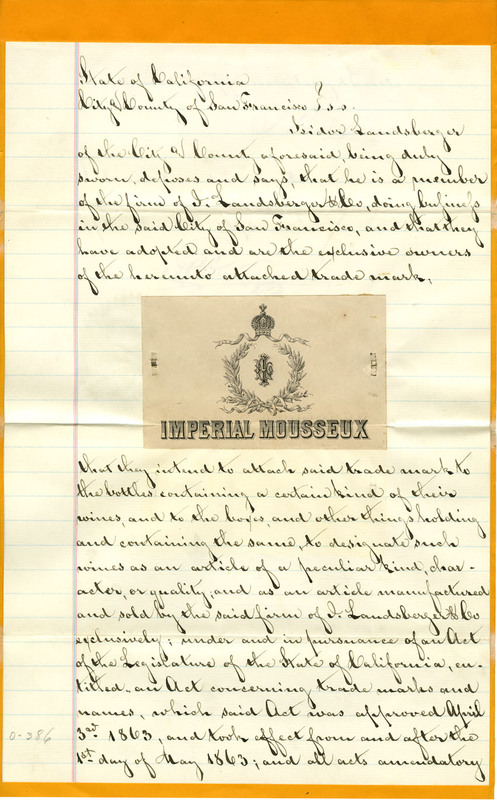 State of California
City & County of San Francisco } ss.
Isidor Landsberger
of the City & County aforesaid, being duly
sworn, deposes and says, that he is a member
of the firm of I. Landsberger & Co, doing business
in the said City of San Francisco, and that they
have adopted and are the exclusive owners
of the hereunto attached trade mark,
IMPERIAL MOUSSEUX
that they intend to attach said trade mark to
the bottles containing a certain kind of their
wines, and to the boxes, and other things holding
and containing the same, to designate such
wines as an article of a peculiar kind, char-
acter, or quality, and as an article manufactured
and sold by the said firm of I. Landsberger & Co
exclusively; under and in pursuance of an Act
of the Legislature of the State of California, en-
titled, an Act concerning trade marks and
names, which said Act was approved April
3rd 1863, and took effect from and after the
1st day of May 1863; and all acts amendatory
0-386